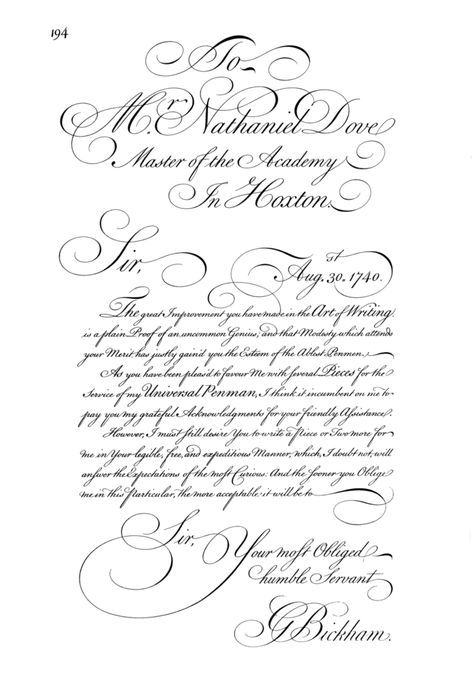 194
To
Mr. Nathaniel Dove
Master of the Academy
In Hoxton.
Sir,
Aug. 30.st 1740.
The great Improvement you have made in the Art of Writing,
is a plain Proof of an uncommon Genius, and that Modesty which attends
your Merit has justly gain'd you the Esteem of the Ablest Penmen.
As you have been pleas'd to favour Me with several Pieces for the
Service of my Universal Penman, I think it incumbent on me to
pay you my grateful Acknowledgments for your friendly Assistance.
However, I must still desire You to write a Piece or Two more for
me in Your legible, free, and expeditious Manner, which, I doubt not, will
answer the Expectations of the most Curious. And the sooner you Oblige
me in this Particular, the more acceptable it will be to
Sir,
Your most Obliged
humble Servant
G Bickham.